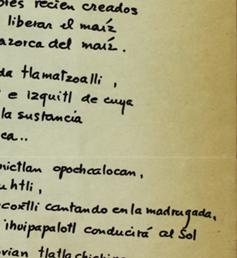 bles recien creados
liberar el maíz
azorca del maíz.
da tlamatzoalli,
e izquitl de cuya
la sustancia
ca..
nictlan opochcalocan,
uhtli,
coxtli cantando en la madrugada,
ihuipapalotl conducirá al Sol
vian